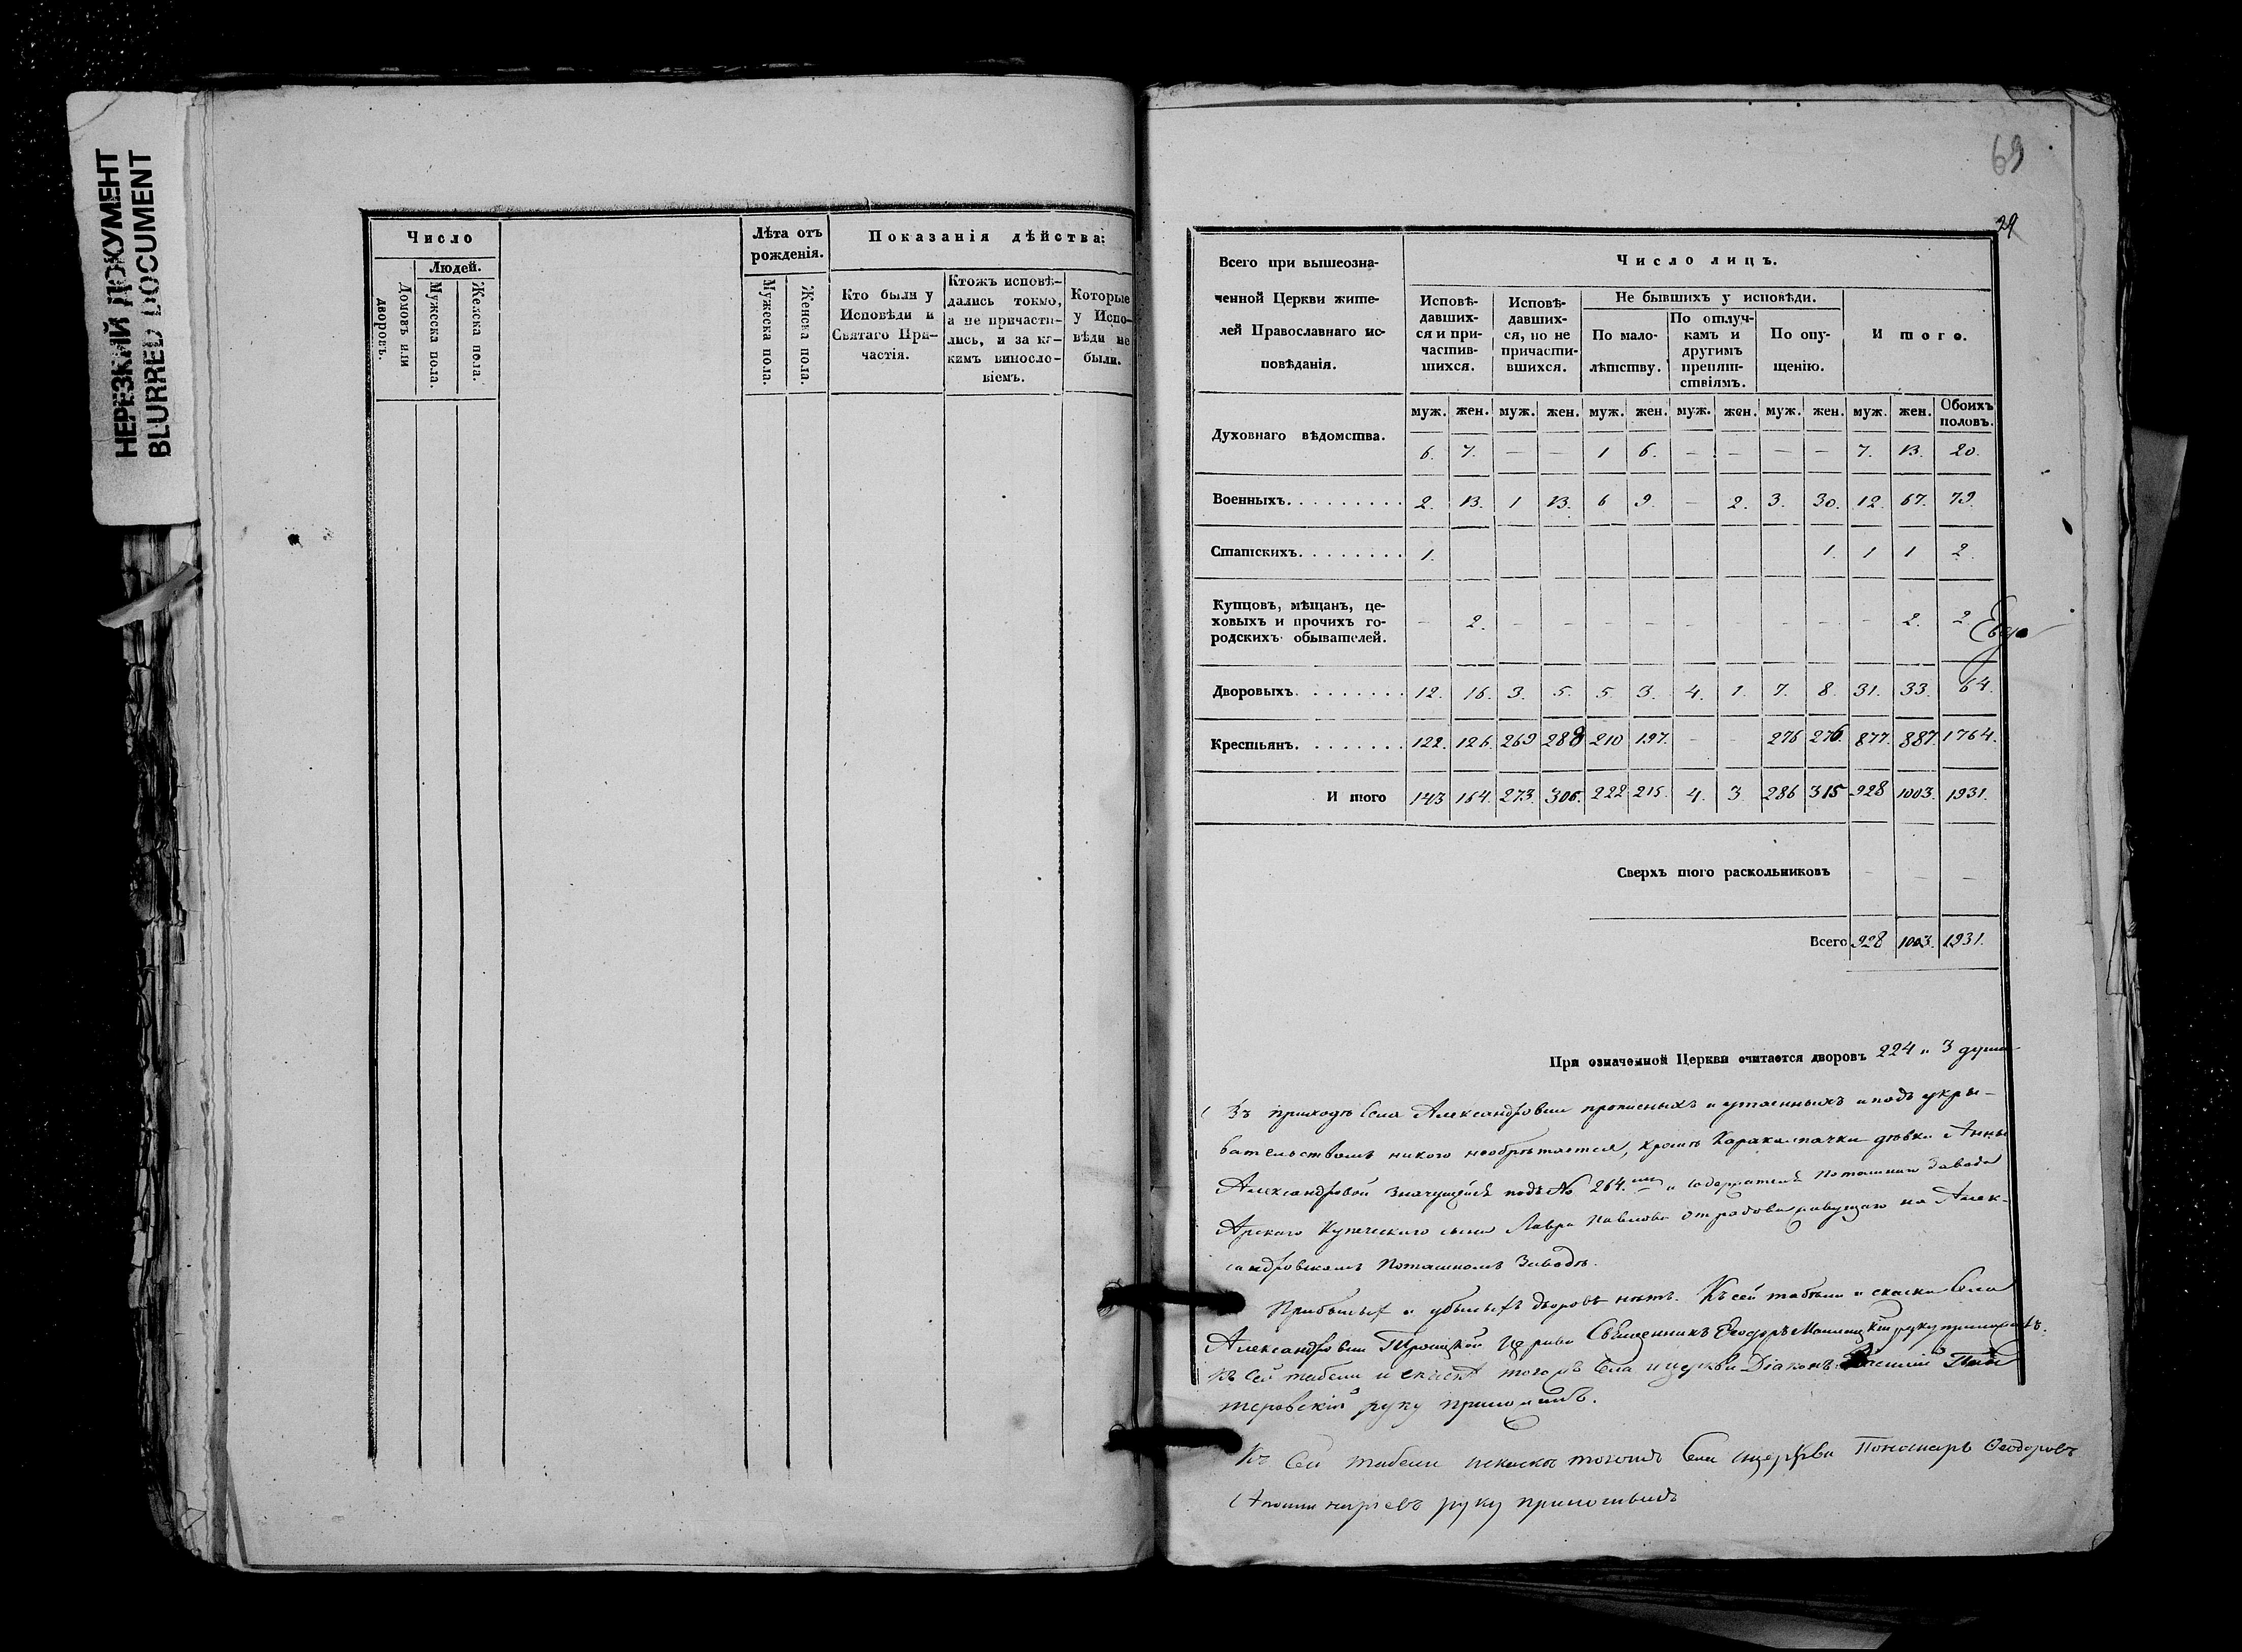 НЕРЕЗКИЙ ДОКУМЕНТ
BLURRED DOCUMENT
Число
Людей.
Домовъ или дворовъ.
Мужеска пола.
Женска пола.
Лѣта отъ рожденія.
Мужеска пола.
Женска пола.
Показанія дѣйства:
Кто были у Исповѣди и Святаго Причастія.
Ктожъ исповѣ-
дались токмо,
а не причасти-
лись, и за ка-
кимъ винosло-
віемъ.
Которые
у Испо-
вѣди не
были.
69
29
Всего при вышеозна-
ченной Церкви жите-
лей Православнаго ис-
повѣданія.
Число лицъ.
Исповѣ-
давших-
ся и при-
частив-
шихся.
Исповѣ-
давших-
ся, но не
причасти-
вшихся.
Не бывшихъ у исповѣди.
По мало-
лѣтству.
По отлуч-
камъ и
другимъ
препят-
ствіямъ.
По опу-
щенію.
Итого.
муж. жен. муж. жен. муж. жен. муж. жен. муж. жен. муж. жен. Обоихъ половъ.
Духовнаго вѣдомства. 6. 7. — — 1 6. — — — — 7. 13. 20.
Военныхъ. 2. 13. 1 13. 6 9. — 2. 3. 30. 12. 67. 79.
Статскихъ. 1. 1. 1 1 2.
Купцовъ, мѣщанъ, це-
ховыхъ и прочихъ го-
родскихъ обывателей. — 2. — — — — — — — — — 2. 2
Дворовыхъ. 12. 16. 3. 5. 5. 3. 4. 1. 7. 8. 31. 33. 64.
Крестьянъ. 122. 126. 269 288 210 197. — — 276 276. 877. 887. 1764.
Итого 143 164. 273. 306. 222 215. 4. 3. 286 315 928 1003. 1931.
Сверхъ того раскольниковъ — — —
Всего 928 1003. 1931.
При означенной Церкви считается дворовъ 224 и 3 души
Въ приходѣ села Александровки прописныхъ и утаенныхъ и подъ укры-
вательствомъ никого необрѣтается, кромѣ Каракалпачки дѣвки Анны
Александровой значущейся подъ № 264. и содержателя Поташнаго Завода
Арскаго Купеческаго сына Лавра Павлова на Алек-
сандровскомъ Поташномъ Заводѣ.
Прибылыхъ и убылыхъ дворовъ нѣтъ. Къ сей табели и скаски Села
Александровки Троицкой Церкви Священникъ Ѳеодоръ руку приложилъ.
Къ сей табели и скаскѣ тогожъ Села и церкви Діаконъ Василій
руку приложилъ.
Къ сей табели и скаскѣ тогожъ Села и церкви Пономарь Ѳеодоръ
руку приложилъ